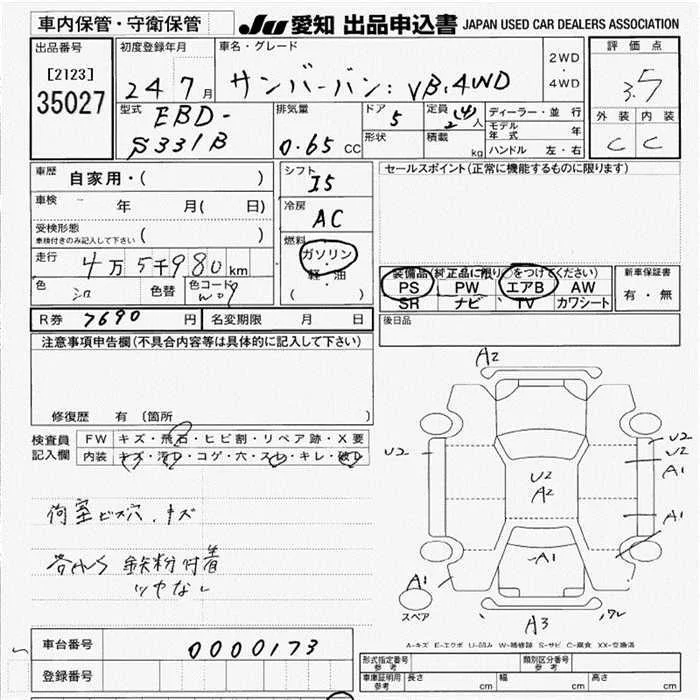 車内保管・守衛保管
JU 愛知 出品申込書 JAPAN USED CAR DEALERS ASSOCIATION
出品番号
[2123]
35027
初度登録年月
24 7 月
車名・グレード
サンバーバン: VB.4WD
2WD
・
4WD
評価点
3.5
外装 内装
C C
型式
EBD-
S331B
排気量
0.65 CC
ドア
5
形状
定員
2(4)人
積載
kg
ディーラー・並行
モデル年式 年
ハンドル 左・右
車歴
自家用・( )
車検
年 月( 日)
受検形態
車検付きのみ記入して下さい ( )
走行
4万5千980km
色
シロ
色替
色コード
W09
シフト
I5
冷房
AC
燃料
ガソリン
・
軽・油
( )
セールスポイント(正常に機能するものに限ります)
装備品(純正品に限り○をつけてください)
PS PW エアB AW
SR ナビ TV カワシート
新車保証書
有・無
後日品
R券 7690 円 名変期限 月 日
注意事項申告欄(不具合内容等は具体的に記入して下さい)
修復歴 有 (箇所 )
検査員
記入欄
FW キズ・飛石・ヒビ割・リペア跡・X要
内装 キズ・汚れ・コゲ・穴・スレ・キレ・破れ
荷室ビス穴、キズ
鉄粉付着
ツヤなし
A2
U2
U2
U2
A1
U2
A2
A1
A1
A1
スペア
A3
A-キズ E-エクボ U-凹み W-補修跡 S-サビ C-腐食 XX-交換済
車台番号 0000173
登録番号
形式指定番号
参考
類別区分番号
参考
車庫証明用
参考
長さ cm 幅 cm 高さ cm